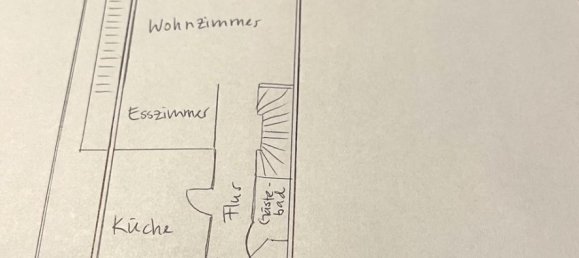 Wohnzimmer
Esszimmer
Küche
Flur
Gäste-
bad